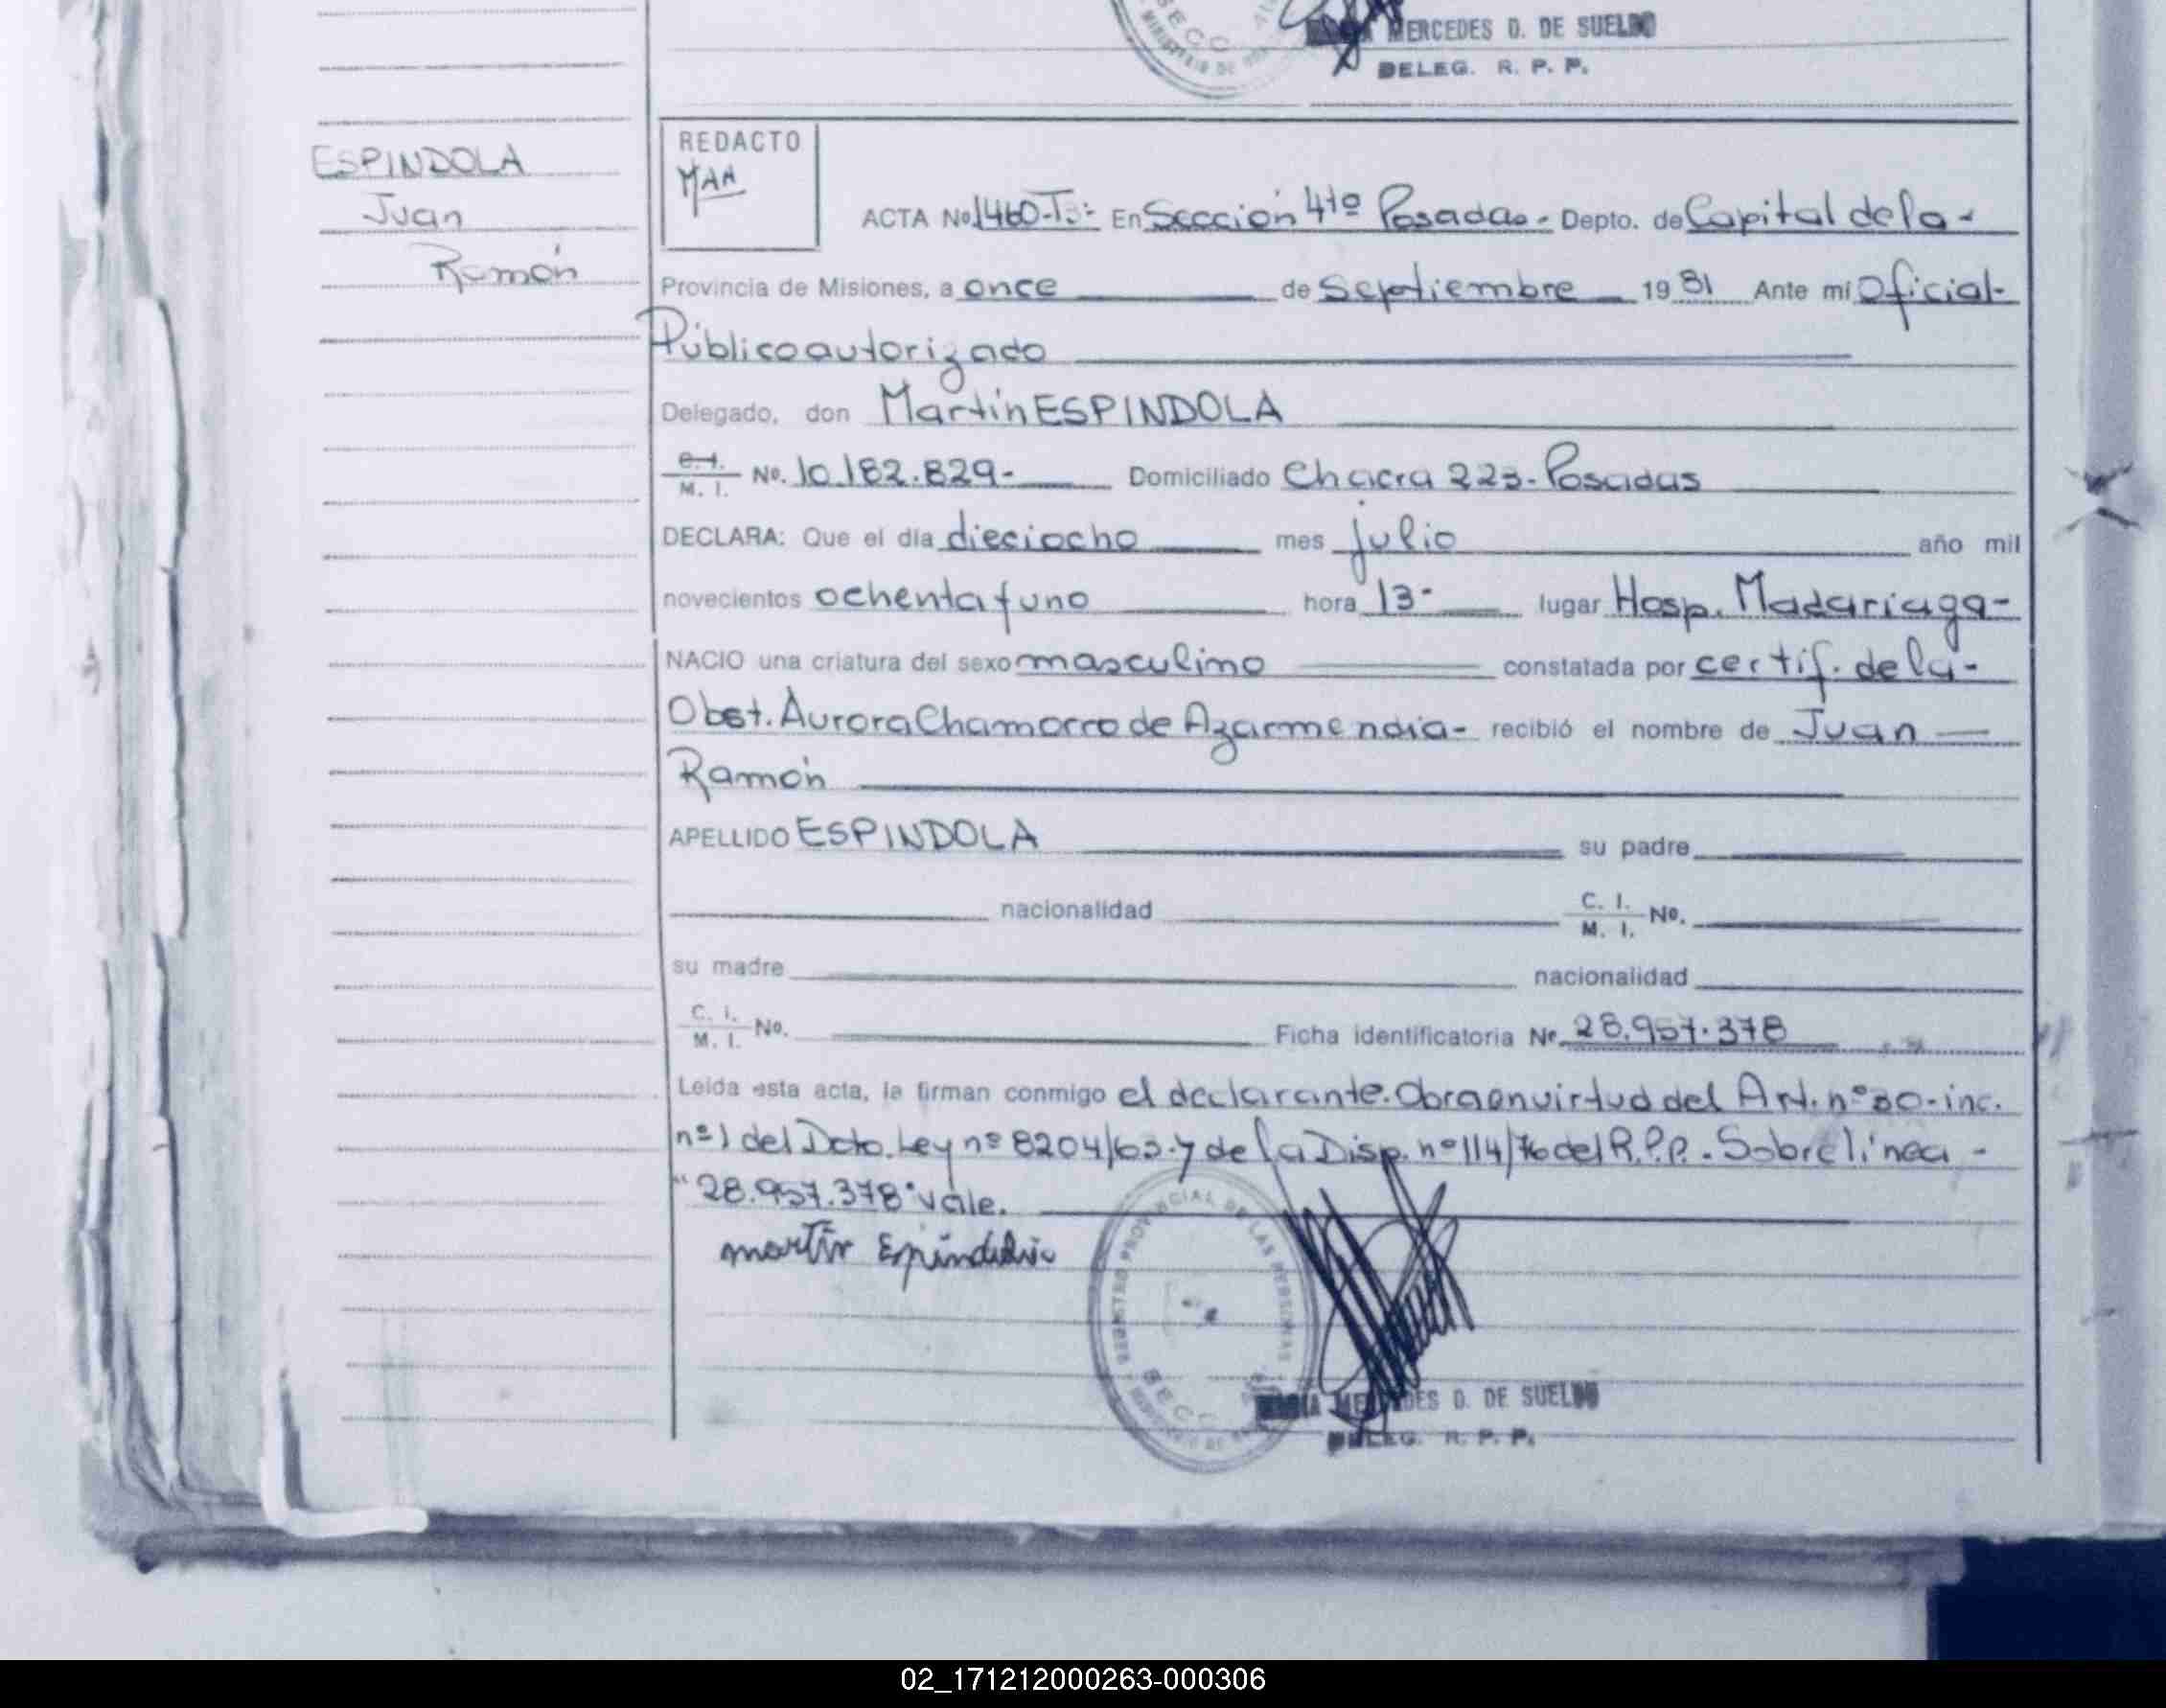 MERCEDES D. DE SUELDO
DELEG. R. P. P.
ESPINDOLA
Juan
Ramón
REDACTO
MAA
ACTA No 1460-T:- En Sección 4tº Posadas- Depto. de Capital de la-
Provincia de Misiones, a once de Septiembre 1981 Ante mí Oficial-
Público autorizado
Delegado, don Martín ESPINDOLA
C. I. / M. I. No. 10.182.829- Domiciliado Chacra 223- Posadas
DECLARA: Que el día dieciocho mes julio año mil
novecientos ochenta y uno hora 13- lugar Hosp. Madariaga-
NACIO una criatura del sexo masculino constatada por certif. de la-
Obst. Aurora Chamorro de Azarmendia- recibió el nombre de Juan
Ramón
APELLIDO ESPINDOLA su padre
nacionalidad C. I. / M. I. No.
su madre nacionalidad
C. I. / M. I. No. Ficha identificatoria Nº 28.957.378
Leída esta acta, la firman conmigo el declarante. Obra en virtud del Art. nº 30- inc.
nº 1 del Dcto. Ley nº 8204/63- y de la Disp. nº 114/76 del R.P.P. - Sobre línea -
"28.957.378" vale.
martin Espindola
REGISTRO PROVINCIAL DE LAS PERSONAS
SECC
MARIA MERCEDES D. DE SUELDO
DELEG. R. P. P.
02_171212000263-000306